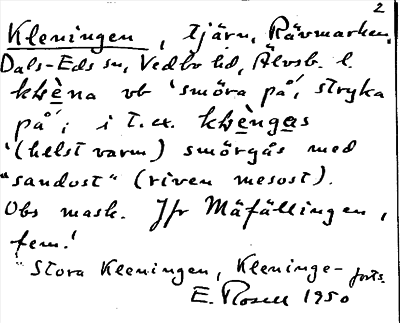 2
Kleningen, tjärn, Rävmarken,
Dals-Eds sn, Vedbo hd, Älvsb. l.
klèna vb 'smöra på', stryka
på'; i t.ex. klèngas
'(helst varm) smörgås med
"sandost" (riven mesost).
Obs mask. Jfr Mäfällingen,
fem.!
"Stora Kleningen, Kleninge- forts.
E. Rosell 1950